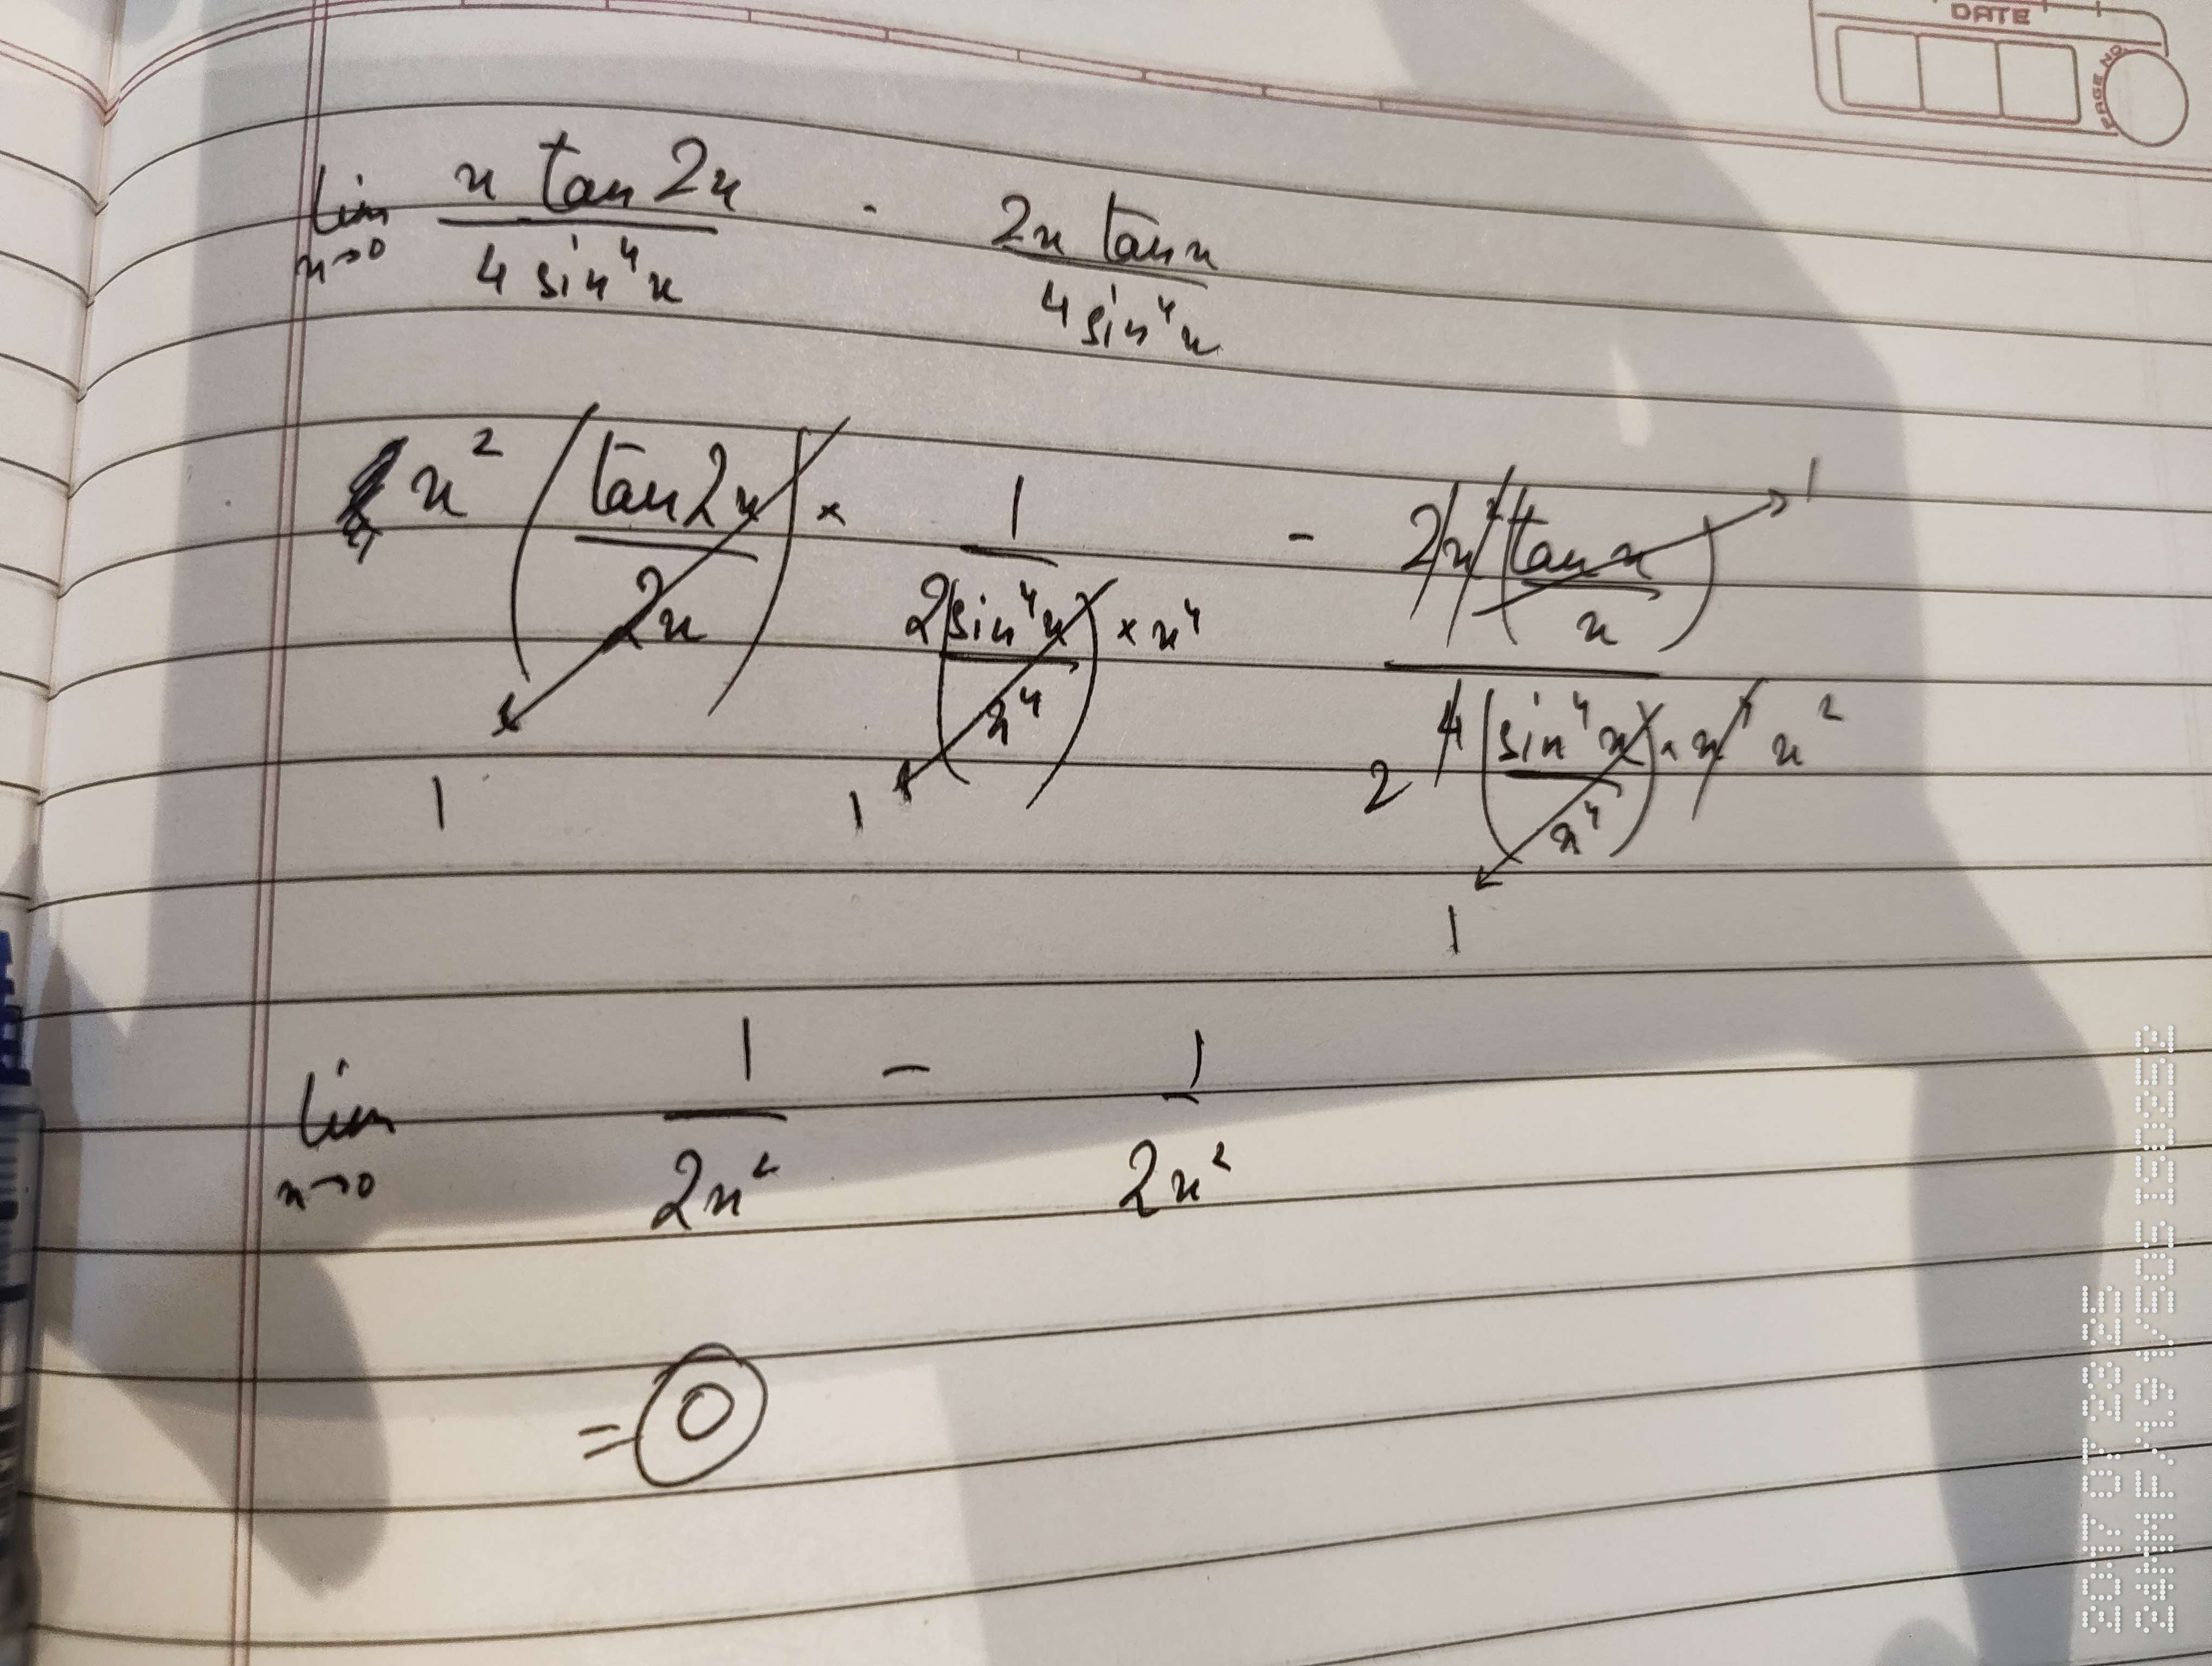 DATE
PAGE NO.
lim x→0 x tan 2x / 4 sin⁴x - 2x tan x / 4 sin⁴x
x² (tan 2x / 2x) × 1 / 2(sin⁴x / x⁴) × x⁴ - 2x²(tan x / x) / 4(sin⁴x / x⁴) × x⁴ x²
1
2
1 1
1
lim x→0 1 / 2x² - 1 / 2x²
= 0
2017 07 23 25
24MM F/1.9 1/50S ISO252